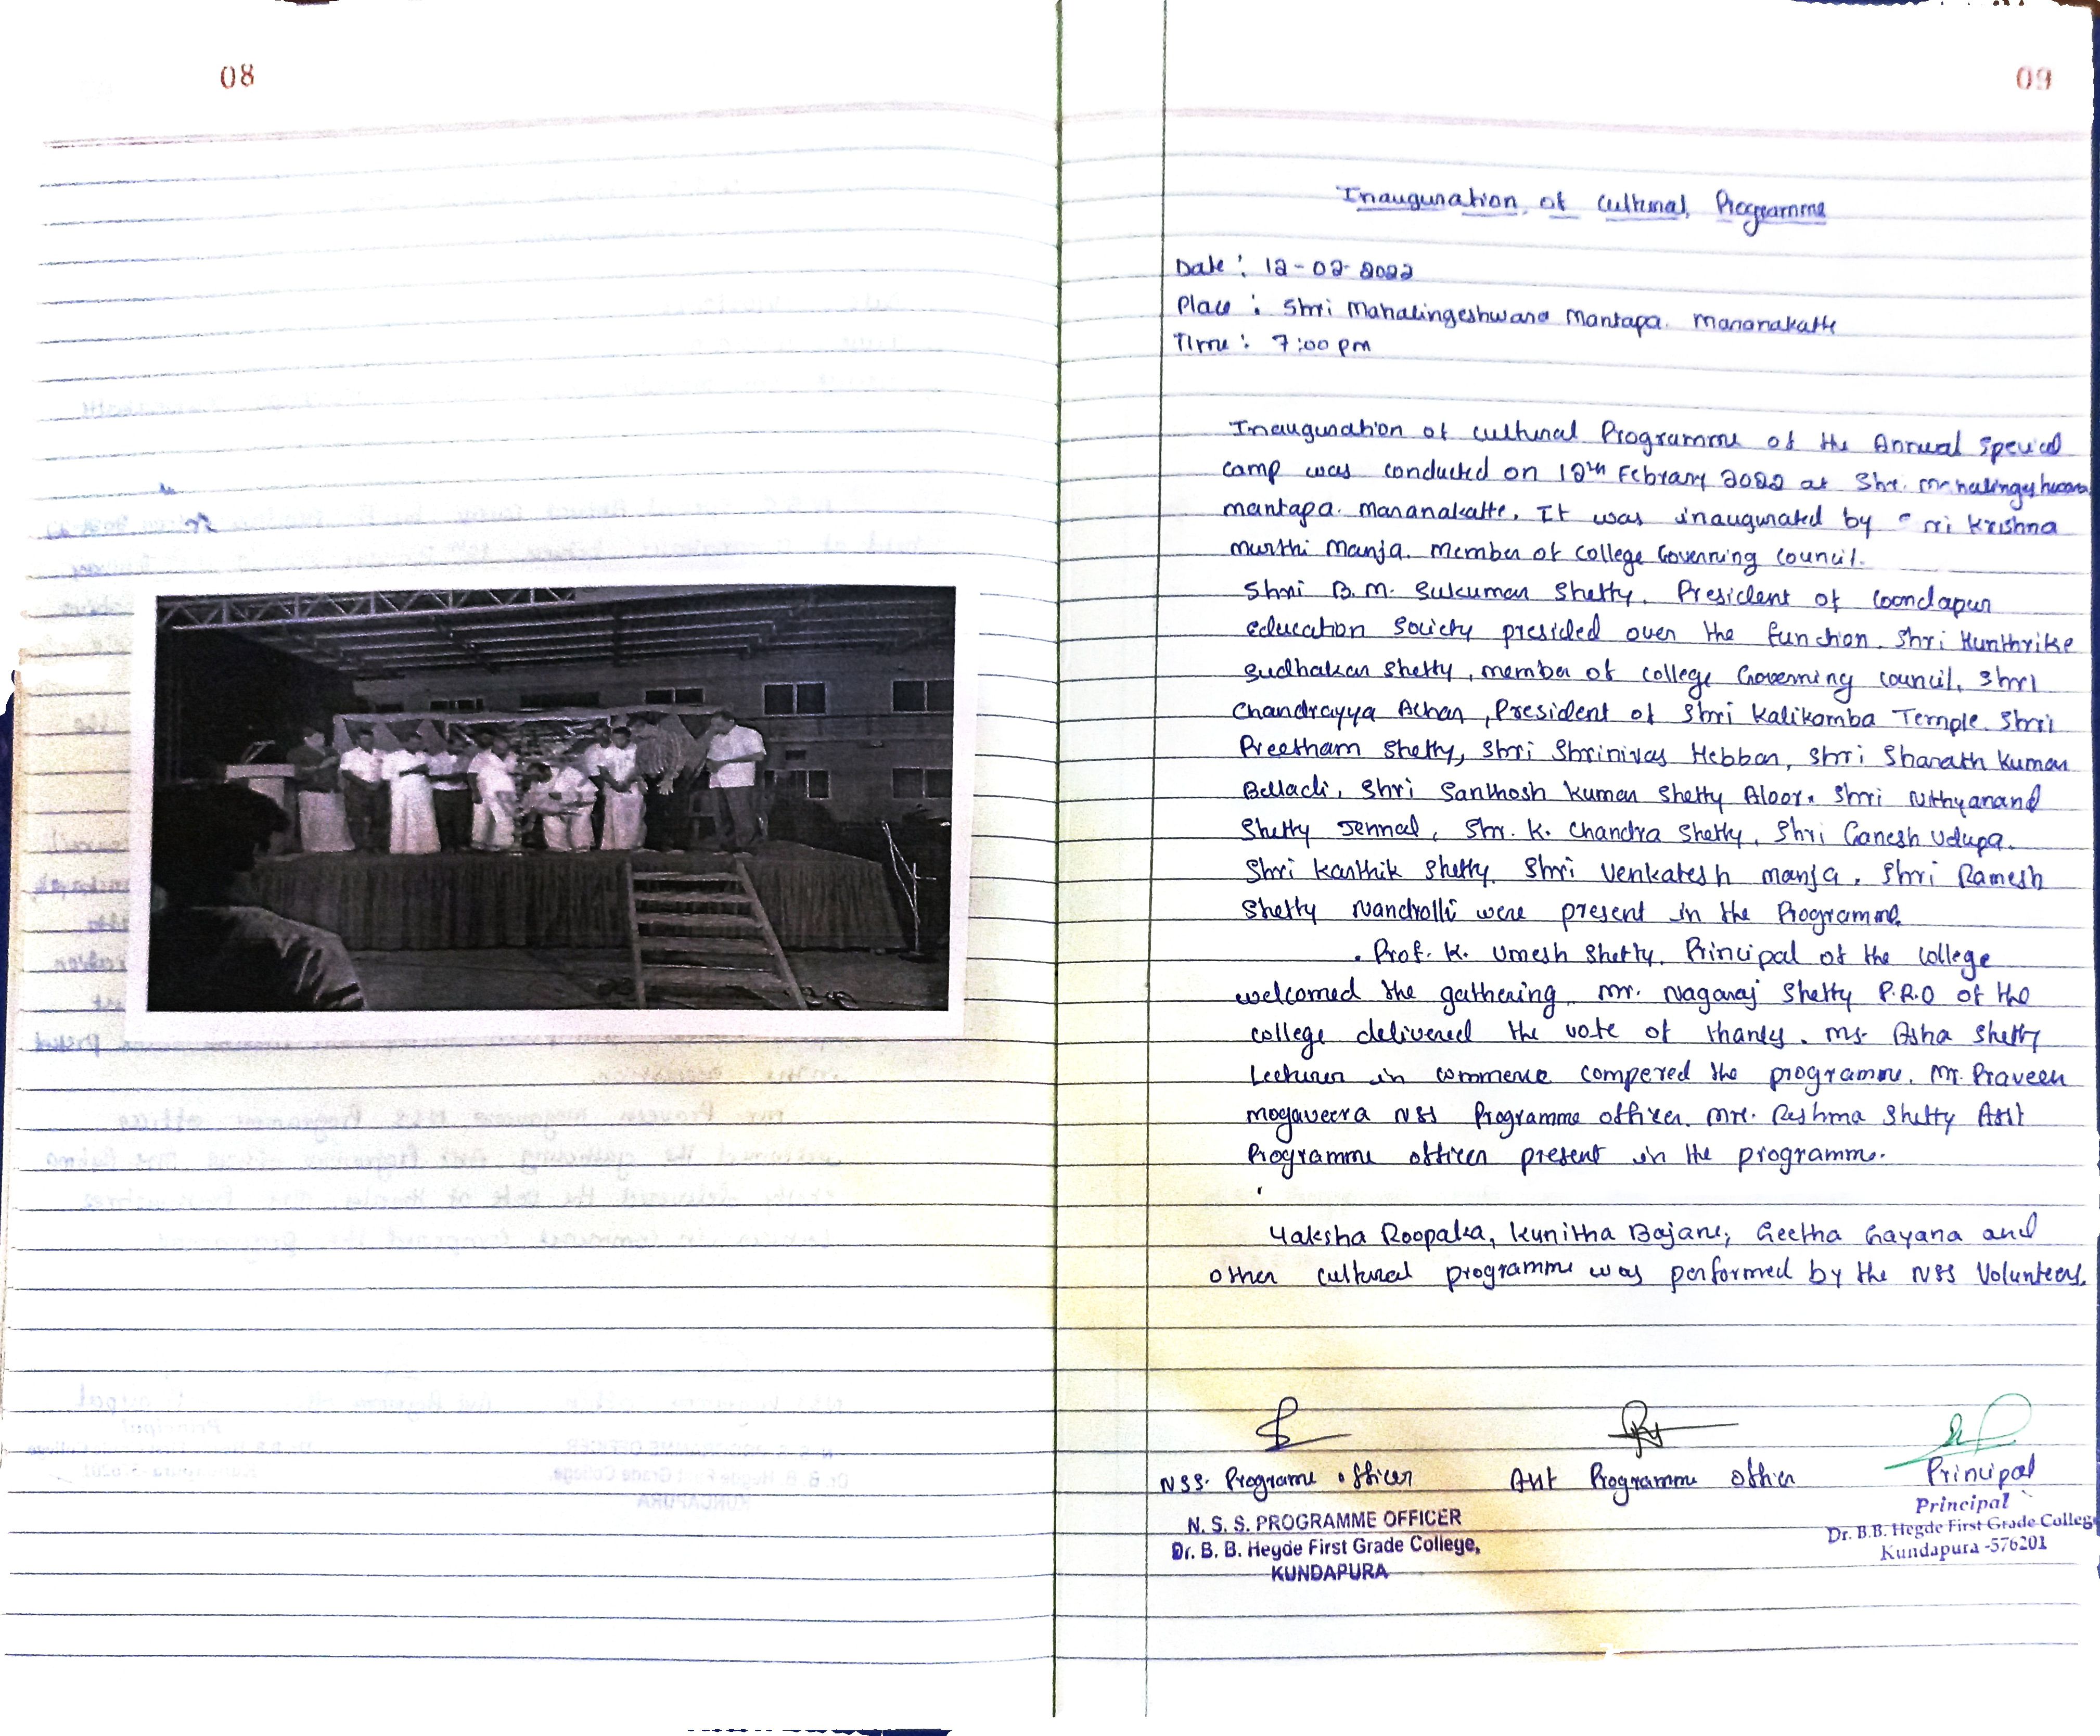 08
09
Inauguration of Cultural Programme
Date : 12-02-2022
Place : Shri Mahalingeshwara Mantapa. Mananakatte
Time : 7:00 pm
Inauguration of cultural Programme of the Annual Special
camp was conducted on 12th Febrary 2022 at Shri. Mahalingeshwara
mantapa. Mananakatte. It was inaugurated by Shri Krishna
murthi Manja. member of college Governing Council.
Shri B.M. Sukumar Shetty. President of Coondapur
education Society presided over the function. Shri Hunthrike
Sudhakar Shetty, member of college Governing Council, Shri
Chandrayya Achar, President of Shri Kalikamba Temple. Shri
Preetham Shetty, Shri Shrinivas Hebbar, Shri Sharath Kumar
Belladi, Shri Santhosh Kumar Shetty Aloor. Shri Nithyanand
Shetty Jennal, Shr. K. Chandra Shetty, Shri Ganesh Udupa.
Shri Karthik Shetty. Shri Venkatesh manja, Shri Ramesh
Shetty Vandralli were present in the Programme.
Prof. K. Umesh Shetty. Principal of the College
welcomed the gathering. Mr. Nagaraj Shetty P.R.O of the
college delivered the vote of thanks. Ms. Asha Shetty
Lecturer in commerce compered the programme. Mr. Praveen
mogaveera NSS Programme officer. Mrs. Reshma Shetty Asst
Programme officer present in the programme.
Yaksha Roopaka, Kunitha Bajane, Geetha Gayana and
other cultural programme was performed by the NSS Volunteers.
NSS. Programe officer Asst Programme officer Principal
N. S. S. PROGRAMME OFFICER
Dr. B. B. Hegde First Grade College,
KUNDAPURA
Principal
Dr. B.B. Hegde First Grade College
Kundapura -576201